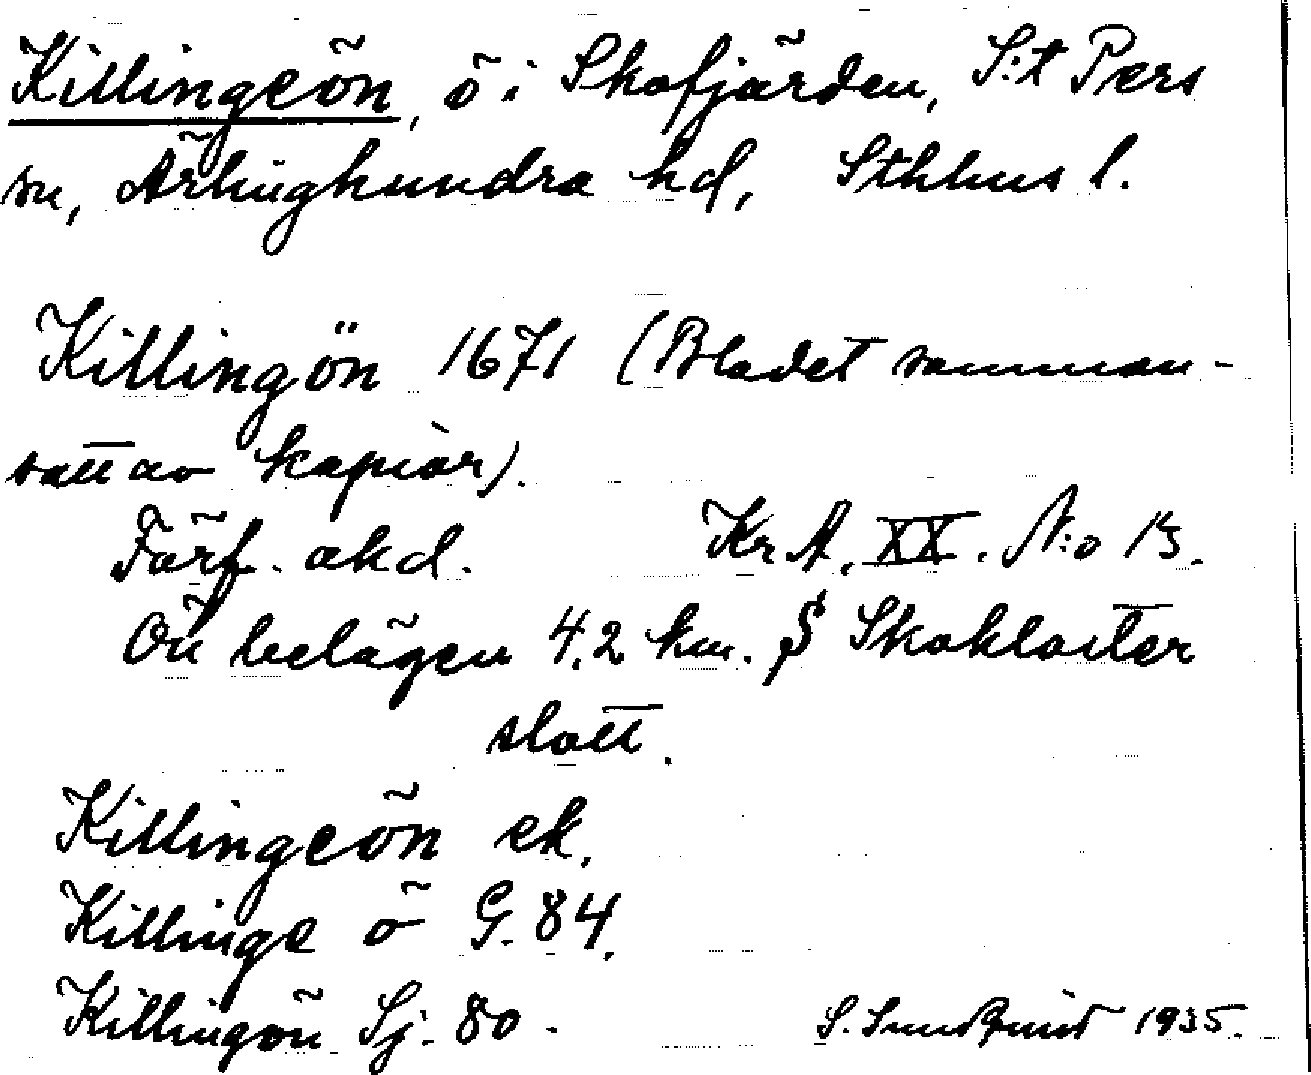 Killingeön, ö i Skofjärden, S:t Pers
sn, Ärlinghundra hd, Sthlms l.
Killingön 1671 (Bladet samman-
satt av kopior).
Förf. okd. Kr.A. XX. N:o 13.
Ön belägen 4,2 km. S Skokloster
slott.
Killingeön ek.
Killinge ö G. 84.
Killingön Sj. 80.
S. Sundquist 1935.